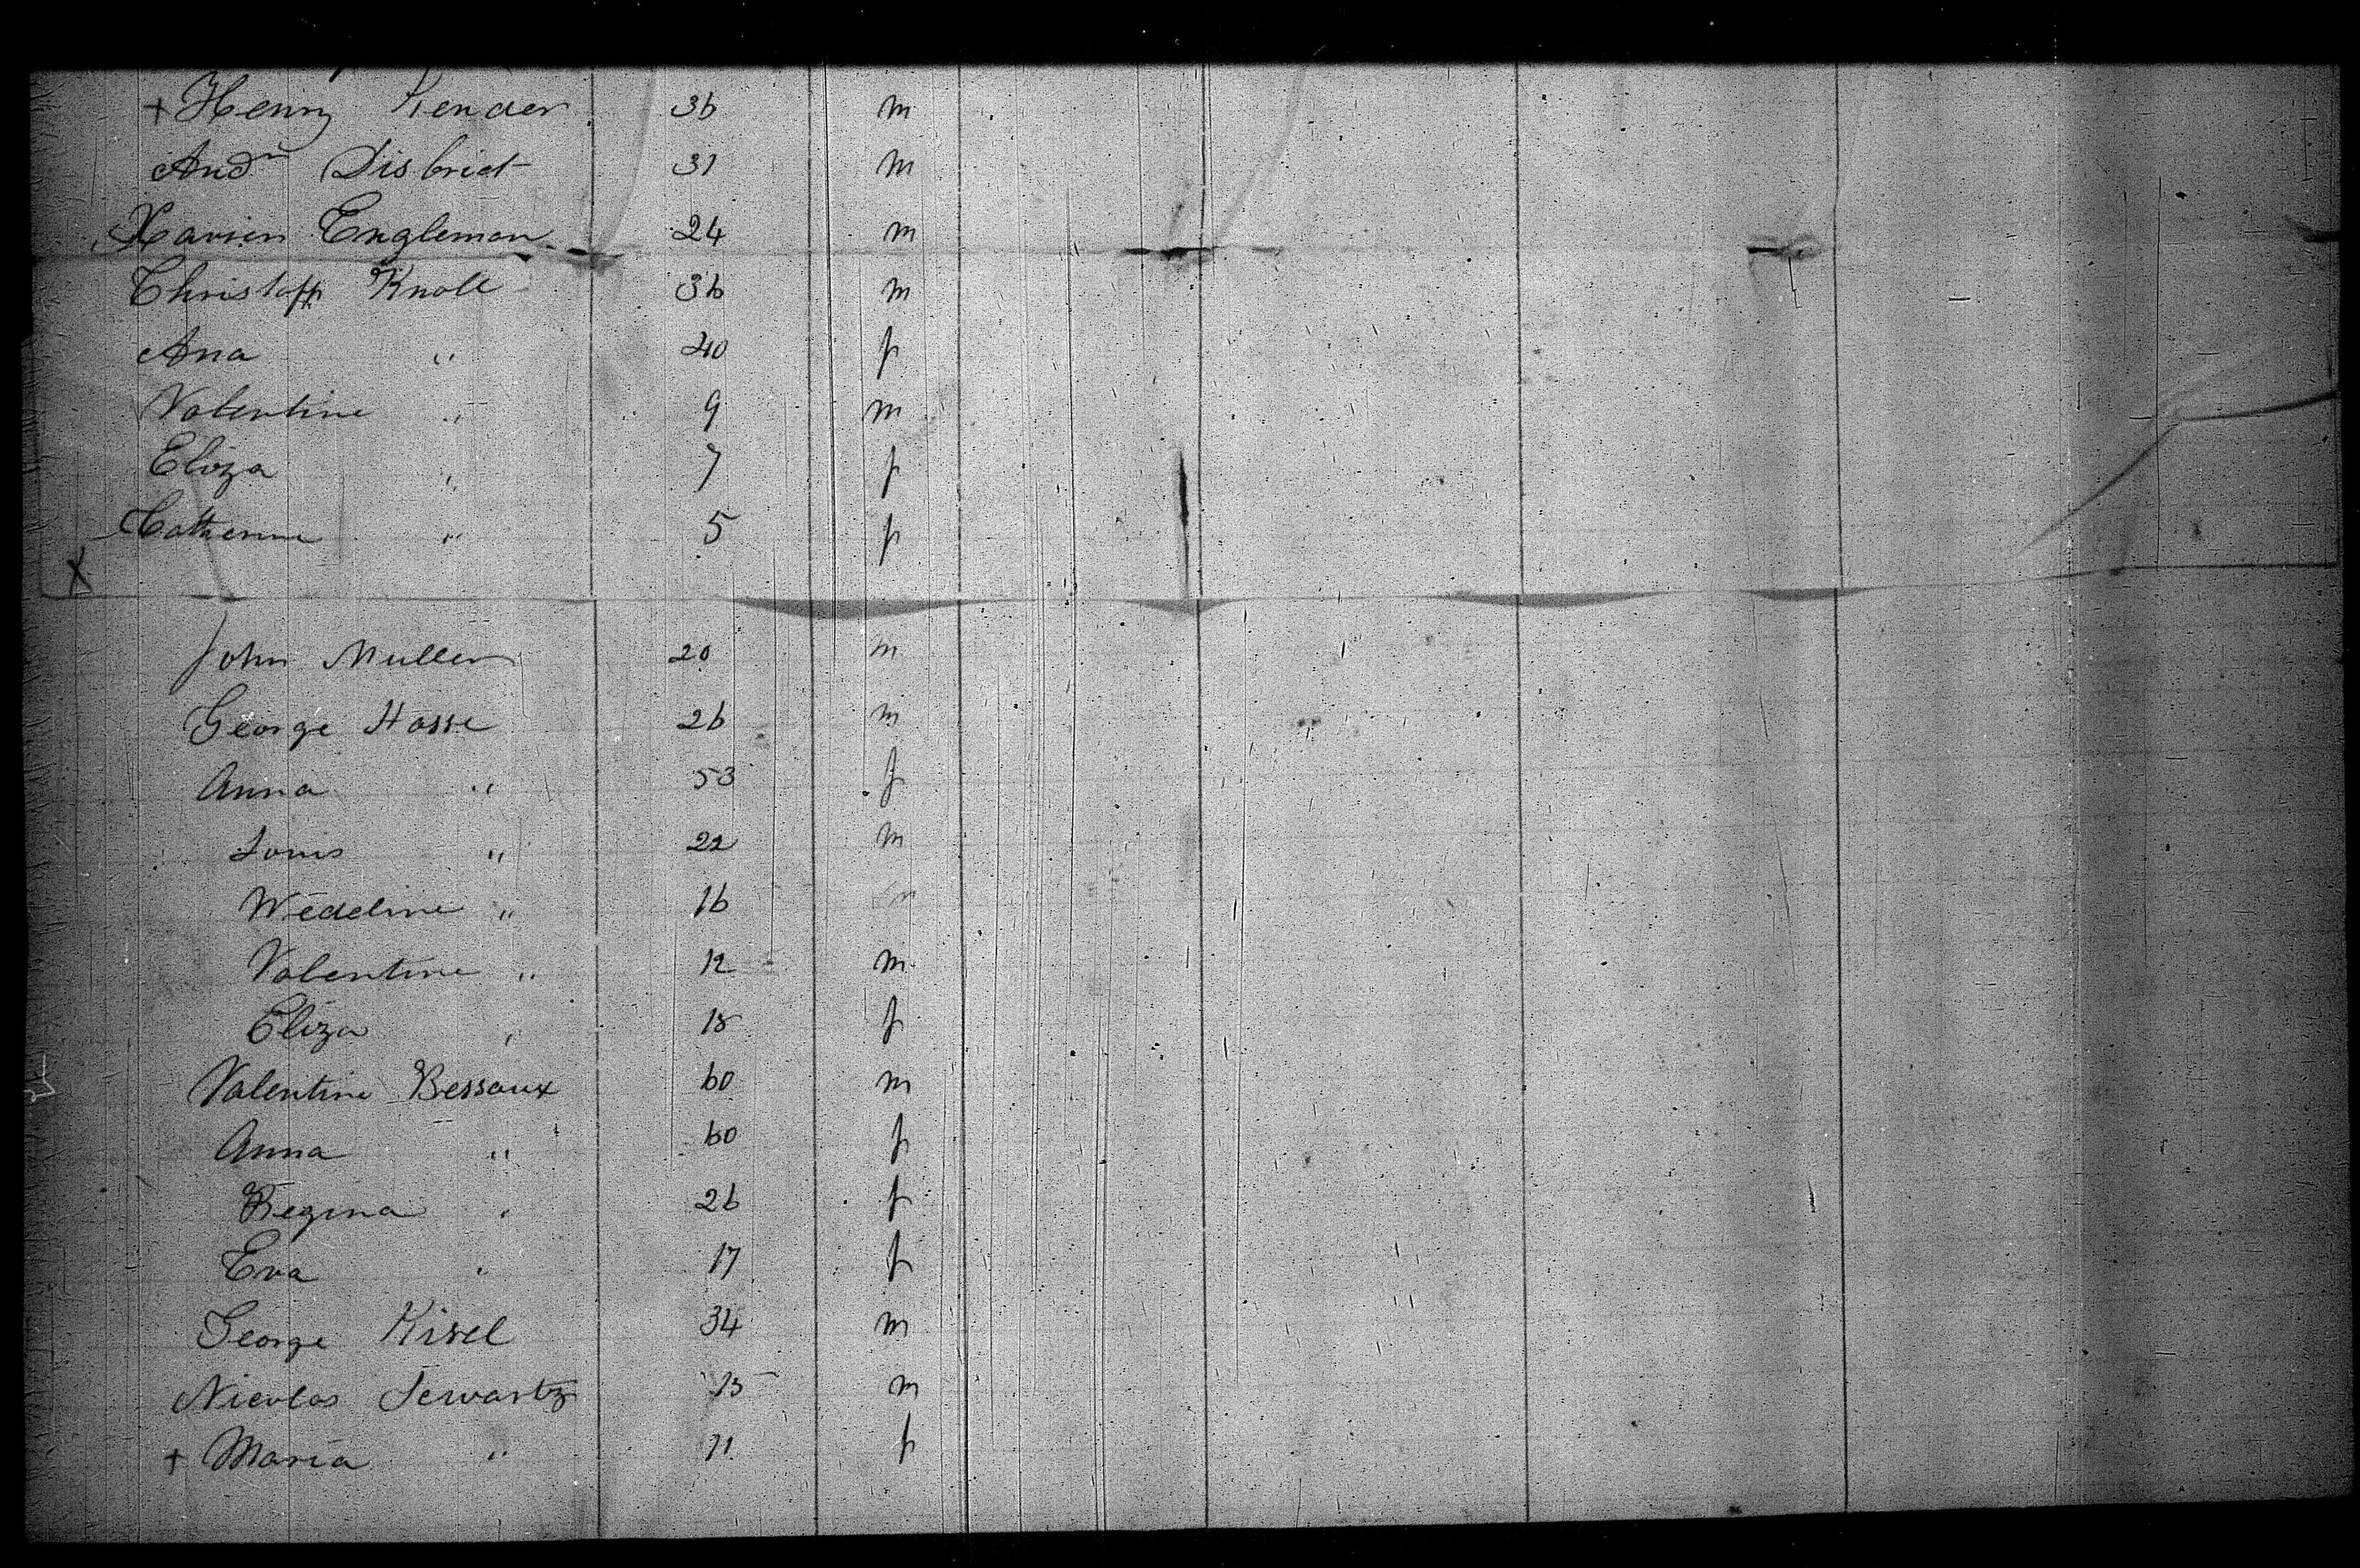 + Henry Kender 36 m
And^w Disbrict 31 m
Xavier Engleman 24 m
Christoff Knoll 36 m
Ana " 40 f
Valentine " 9 m
Eliza " 7 f
Catherine " 5 f
X
John Muller 20 m
George Hasse 26 m
Anna " 53 f
Louis " 22 m
Wedeline " 16 m
Valentine " 12 m
Eliza " 18 f
Valentine Bessaux 60 m
Anna " 60 f
Regina " 26 f
Eva " 17 f
George Kisel 34 m
Nicolas Scwartz m
+ Maria " f